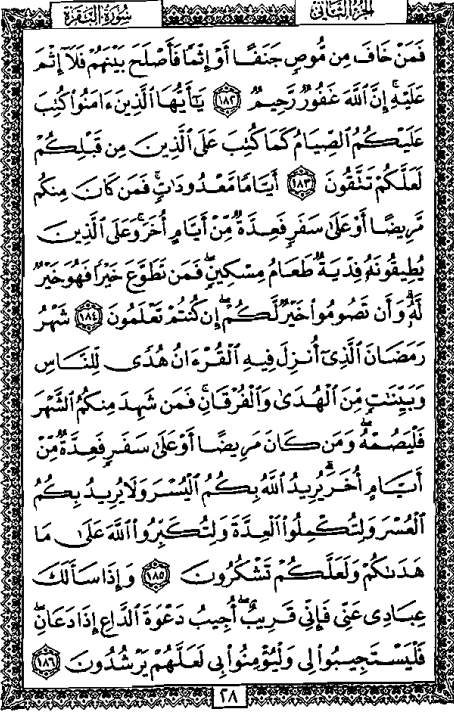 الجزء الثاني سورة البقرة
فَمَنْ خَافَ مِن مُّوصٍ جَنَفًا أَوْ إِثْمًا فَأَصْلَحَ بَيْنَهُمْ فَلَآ إِثْمَ
عَلَيْهِ ۚ إِنَّ ٱللَّهَ غَفُورٌ رَّحِيمٌ ١٨٢ يَـٰٓأَيُّهَا ٱلَّذِينَ ءَامَنُوا۟ كُتِبَ
عَلَيْكُمُ ٱلصِّيَامُ كَمَا كُتِبَ عَلَى ٱلَّذِينَ مِن قَبْلِكُمْ
لَعَلَّكُمْ تَتَّقُونَ ١٨٣ أَيَّامًا مَّعْدُودَٰتٍ ۚ فَمَن كَانَ مِنكُم
مَّرِيضًا أَوْ عَلَىٰ سَفَرٍ فَعِدَّةٌ مِّنْ أَيَّامٍ أُخَرَ ۚ وَعَلَى ٱلَّذِينَ
يُطِيقُونَهُۥ فِدْيَةٌ طَعَامُ مِسْكِينٍ ۖ فَمَن تَطَوَّعَ خَيْرًا فَهُوَ خَيْرٌ
لَّهُۥ ۚ وَأَن تَصُومُوا۟ خَيْرٌ لَّكُمْ ۖ إِن كُنتُمْ تَعْلَمُونَ ١٨٤ شَهْرُ
رَمَضَانَ ٱلَّذِىٓ أُنزِلَ فِيهِ ٱلْقُرْءَانُ هُدًى لِّلنَّاسِ
وَبَيِّنَـٰتٍ مِّنَ ٱلْهُدَىٰ وَٱلْفُرْقَانِ ۚ فَمَن شَهِدَ مِنكُمُ ٱلشَّهْرَ
فَلْيَصُمْهُ ۖ وَمَن كَانَ مَرِيضًا أَوْ عَلَىٰ سَفَرٍ فَعِدَّةٌ مِّنْ
أَيَّامٍ أُخَرَ ۗ يُرِيدُ ٱللَّهُ بِكُمُ ٱلْيُسْرَ وَلَا يُرِيدُ بِكُمُ
ٱلْعُسْرَ وَلِتُكْمِلُوا۟ ٱلْعِدَّةَ وَلِتُكَبِّرُوا۟ ٱللَّهَ عَلَىٰ مَا
هَدَىٰكُمْ وَلَعَلَّكُمْ تَشْكُرُونَ ١٨٥ وَإِذَا سَأَلَكَ
عِبَادِى عَنِّى فَإِنِّى قَرِيبٌ ۖ أُجِيبُ دَعْوَةَ ٱلدَّاعِ إِذَا دَعَانِ ۖ
فَلْيَسْتَجِيبُوا۟ لِى وَلْيُؤْمِنُوا۟ بِى لَعَلَّهُمْ يَرْشُدُونَ ١٨٦
٢٨